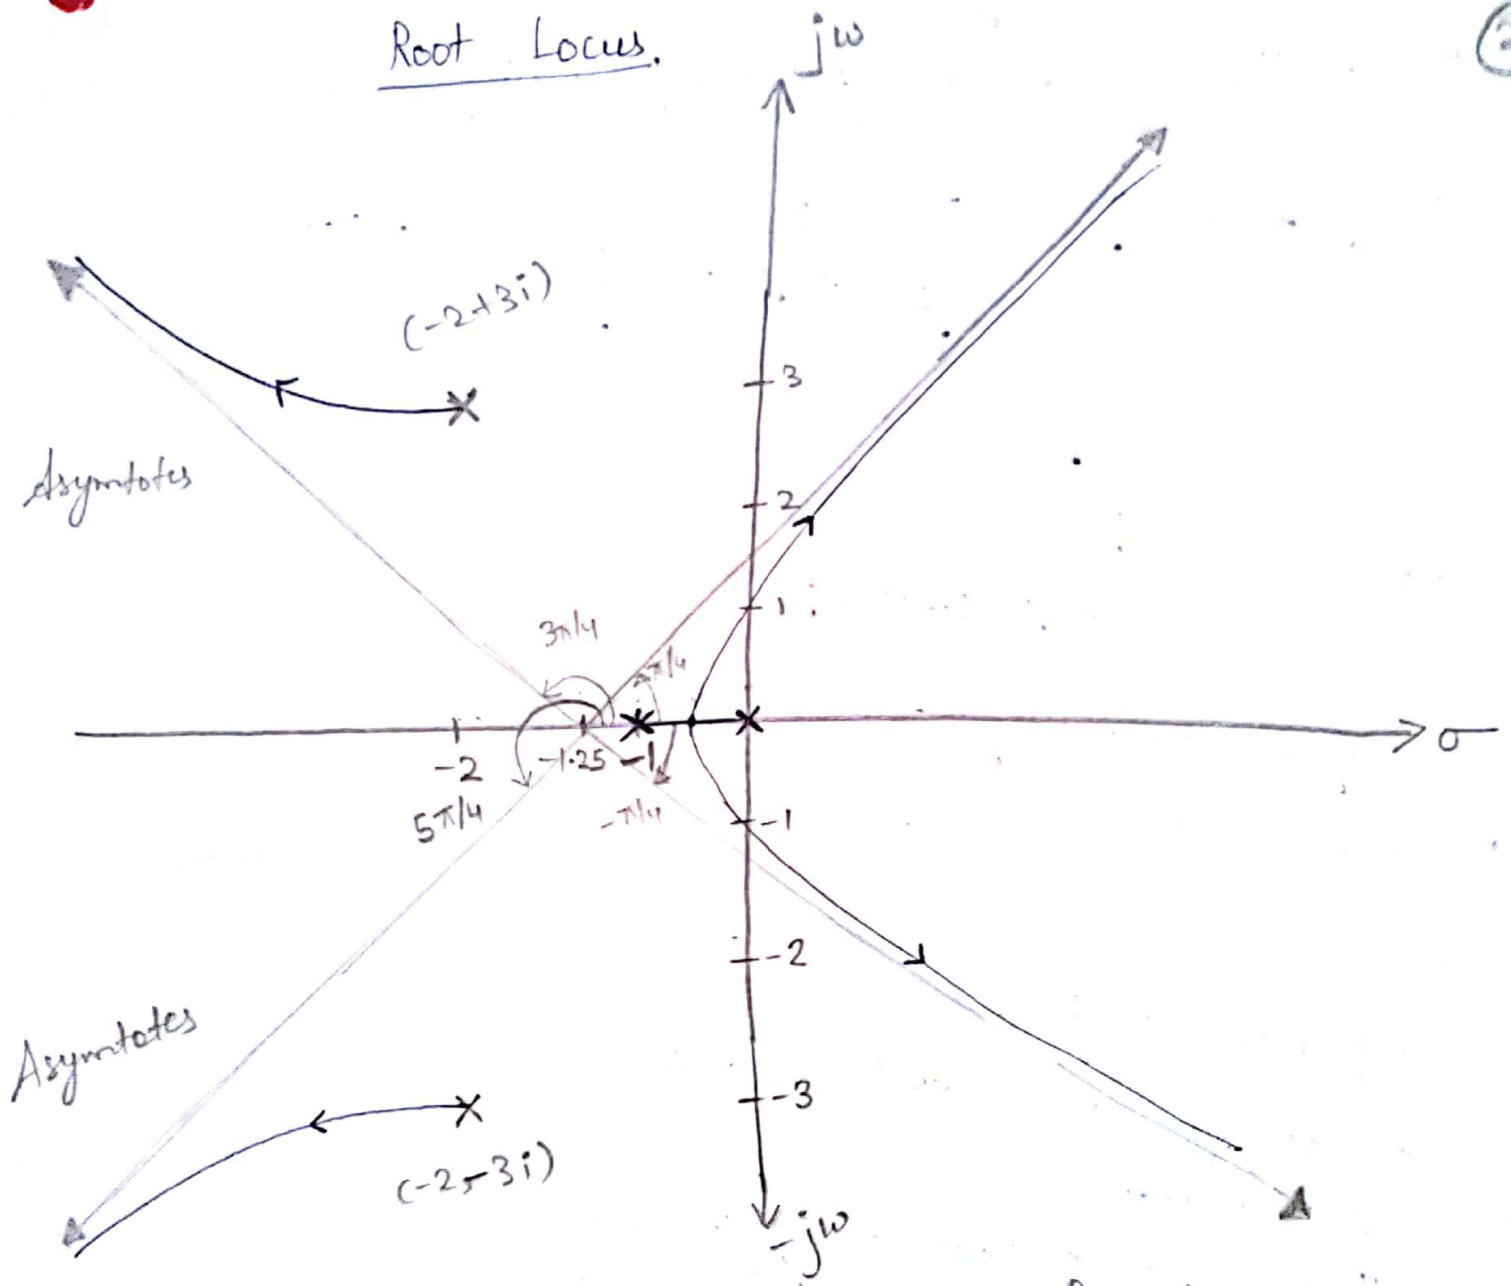 Root Locus.
jω
(-2+3i)
3
Asymtotes
2
1
3π/4
π/4
σ
-2
-1.25
-1
5π/4
-π/4
-1
-2
Asymtotes
-3
(-2-3i)
-jω